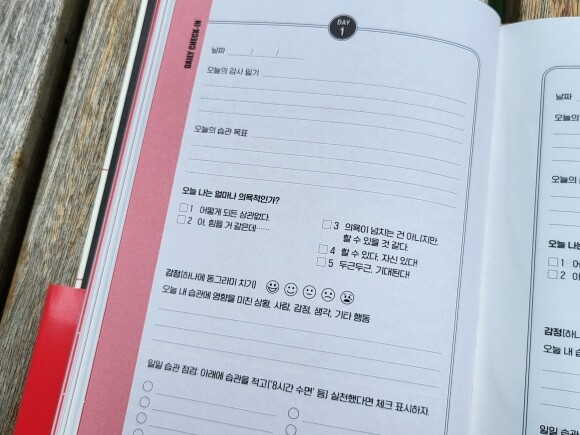 DAILY CHECK-IN
DAY
1
날짜 / /
오늘의 감사 일기
오늘의 습관 목표
오늘 나는 얼마나 의욕적인가?
1 어떻게 되든 상관없다.
2 아, 힘들 거 같은데……
3 의욕이 넘치는 건 아니지만,
할 수 있을 것 같다.
4 할 수 있다, 자신 있다!
5 두근두근, 기대된다!
감정(하나에 동그라미 치기)
오늘 내 습관에 영향을 미친 상황, 사람, 감정, 생각, 기타 행동
일일 습관 점검: 아래에 습관을 적고('8시간 수면' 등) 실천했다면 체크 표시하자.
날짜
오늘의
오늘의
오늘 나는
1
2
감정(하나
오늘 내 습
일일 습